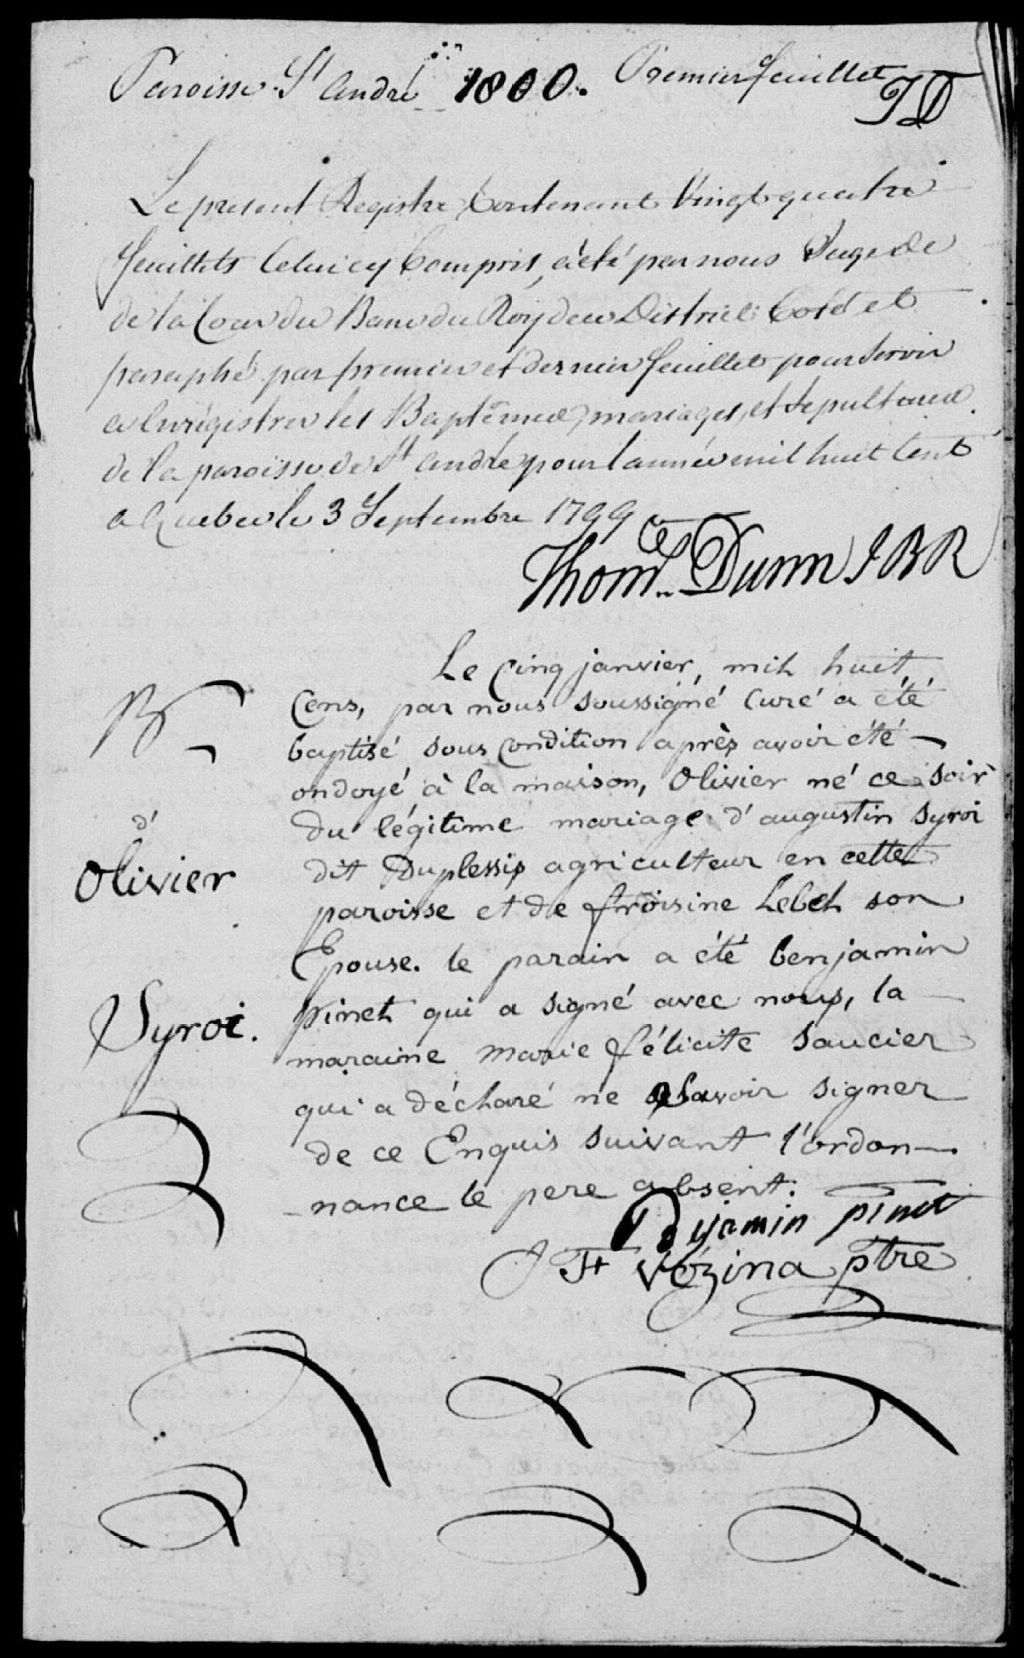 Paroisse St André 1800. Premier feuillet
TD
Le present Registre Contenant Vingt quatre
feuillets Celuicy Compris, àété par nous Juge de
de la Cour du Banc du Roy de ce District Coté et
paraphé par premier et dernier feuillet pour servir
a Enrégistrer les Baptêmes, mariages, et Sepultures
de la paroisse de St André pour lannée mil huit Cent
a Quebec le 3 Septembre 1799
Thoms. Dunn JBR
Le Cinq janvier, mil huit
Cens, par nous soussigné Curé a été
baptisé sous Condition après avoir été
ondoyé à la maison, Olivier né ce soir
du légitime mariage d'augustin Syroi
dit Duplessis agriculteur en cette
paroisse et de frôisine Lebel son
Epouse. le parain a été benjamin
pinet qui a signé avec nous, la
maraine marie félicite Saucier
qui a déclaré ne savoir signer
de ce Enquis suivant l'ordon—
-nance le pere absent.
B
d'
Olivier
Syroi.
Bejamin pinet
J Ft Vézina ptre